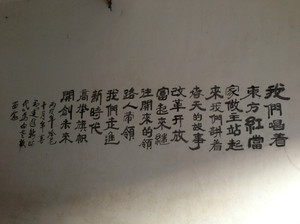 我們唱着
東方紅當
家做主站起
來我們講着
春天的故事
改革开放
富起來繼
往開來的領
路人帶領
我們走進
新時代
高举旗帜
開創未來